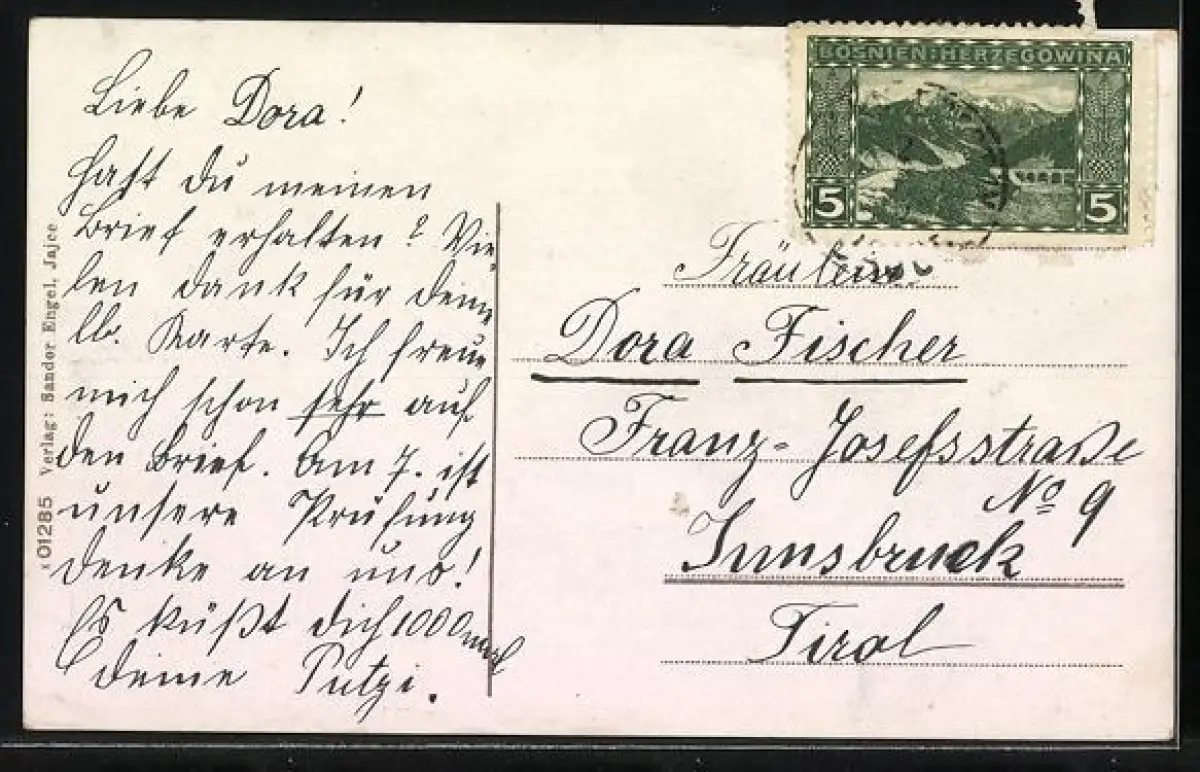 Liebe Dora!
Hast du meinen
Brief erhalten? Vie-
len dank für deine
lb. Karte. Ich freue
mich schon sehr auf
den Brief. Am 7. ist
unsere Prüfung
denke an uns!
Es küßt dich 1000mal
deine Putzi.
x 01285 Verlag: Sandor Engel, Jajce
BOSNIEN:HERZEGOWINA
5 5
Fräulein
Dora Fischer
Franz-Josefsstraße
No 9
Innsbruck
Tirol